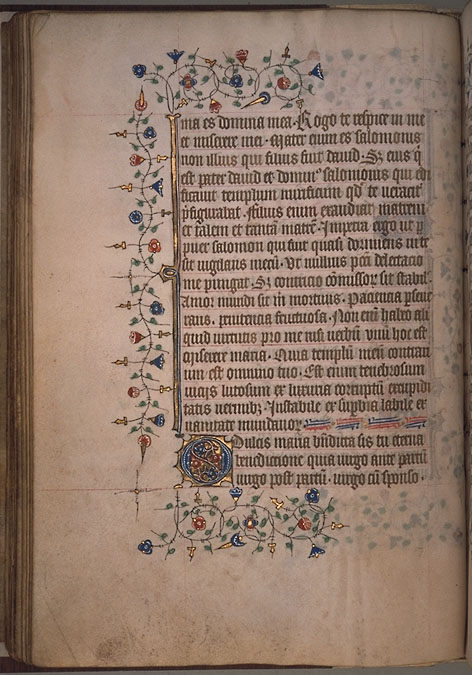 ma es domina mea. Rogo te respice in me
et miserere mei. Mater enim es salomonis
non illius qui filius fuit dauid. Sz eius q̄
est pater dauid et domin⁹ salomonis qui edi
ficauit templum mirificum qd̄ te veracit̄
p̄figurabat. Filius enim exaudiat matrem
et salem et tantā matrē. Impera ergo ut p̄
puer salomon qui fuit quasi dormiens in te
sit uigilans mecū. Ut nullius pcti delectacio
me pungat. Sz contricio cōmissor̄ sit stabil.
Amor mundi sit in mortuus. Paciencia pseue
rans. penitencia fructuosa. Non enī habeo ali
quid uirtutis pro me nisi uerbū unū hoc est
miserere maria. Quia templū meū contrari
um est omnino tuo. Est enim tenebrosum
uiciis lutosum ex luxuria corruptū ex cupidi
tatis uermibz. Instabile ex supbia labile ex
uanitate mundanor̄
O Dulcis maria bn̄dicta sis tu eterna
benedictione quia uirgo ante partū
uirgo post partū. uirgo cū sponso.